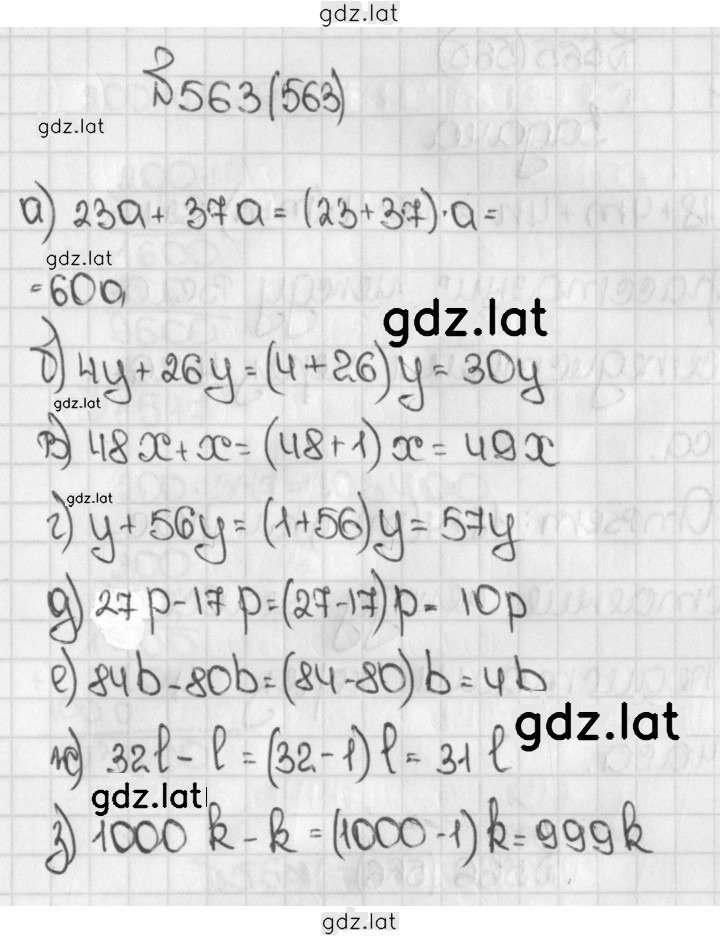 gdz.lat
№563(563)
gdz.lat
а) 23a + 37a = (23+37)·a =
gdz.lat
= 60a
gdz.lat
б) 4y + 26y = (4+26)y = 30y
gdz.lat
в) 48x + x = (48+1)x = 49x
gdz.lat
г) y + 56y = (1+56)y = 57y
д) 27p - 17p = (27-17)p = 10p
е) 84b - 80b = (84-80)b = 4b
gdz.lat
ж) 32l - l = (32-1)l = 31l
gdz.lat
з) 1000k - k = (1000-1)k = 999k
gdz.lat